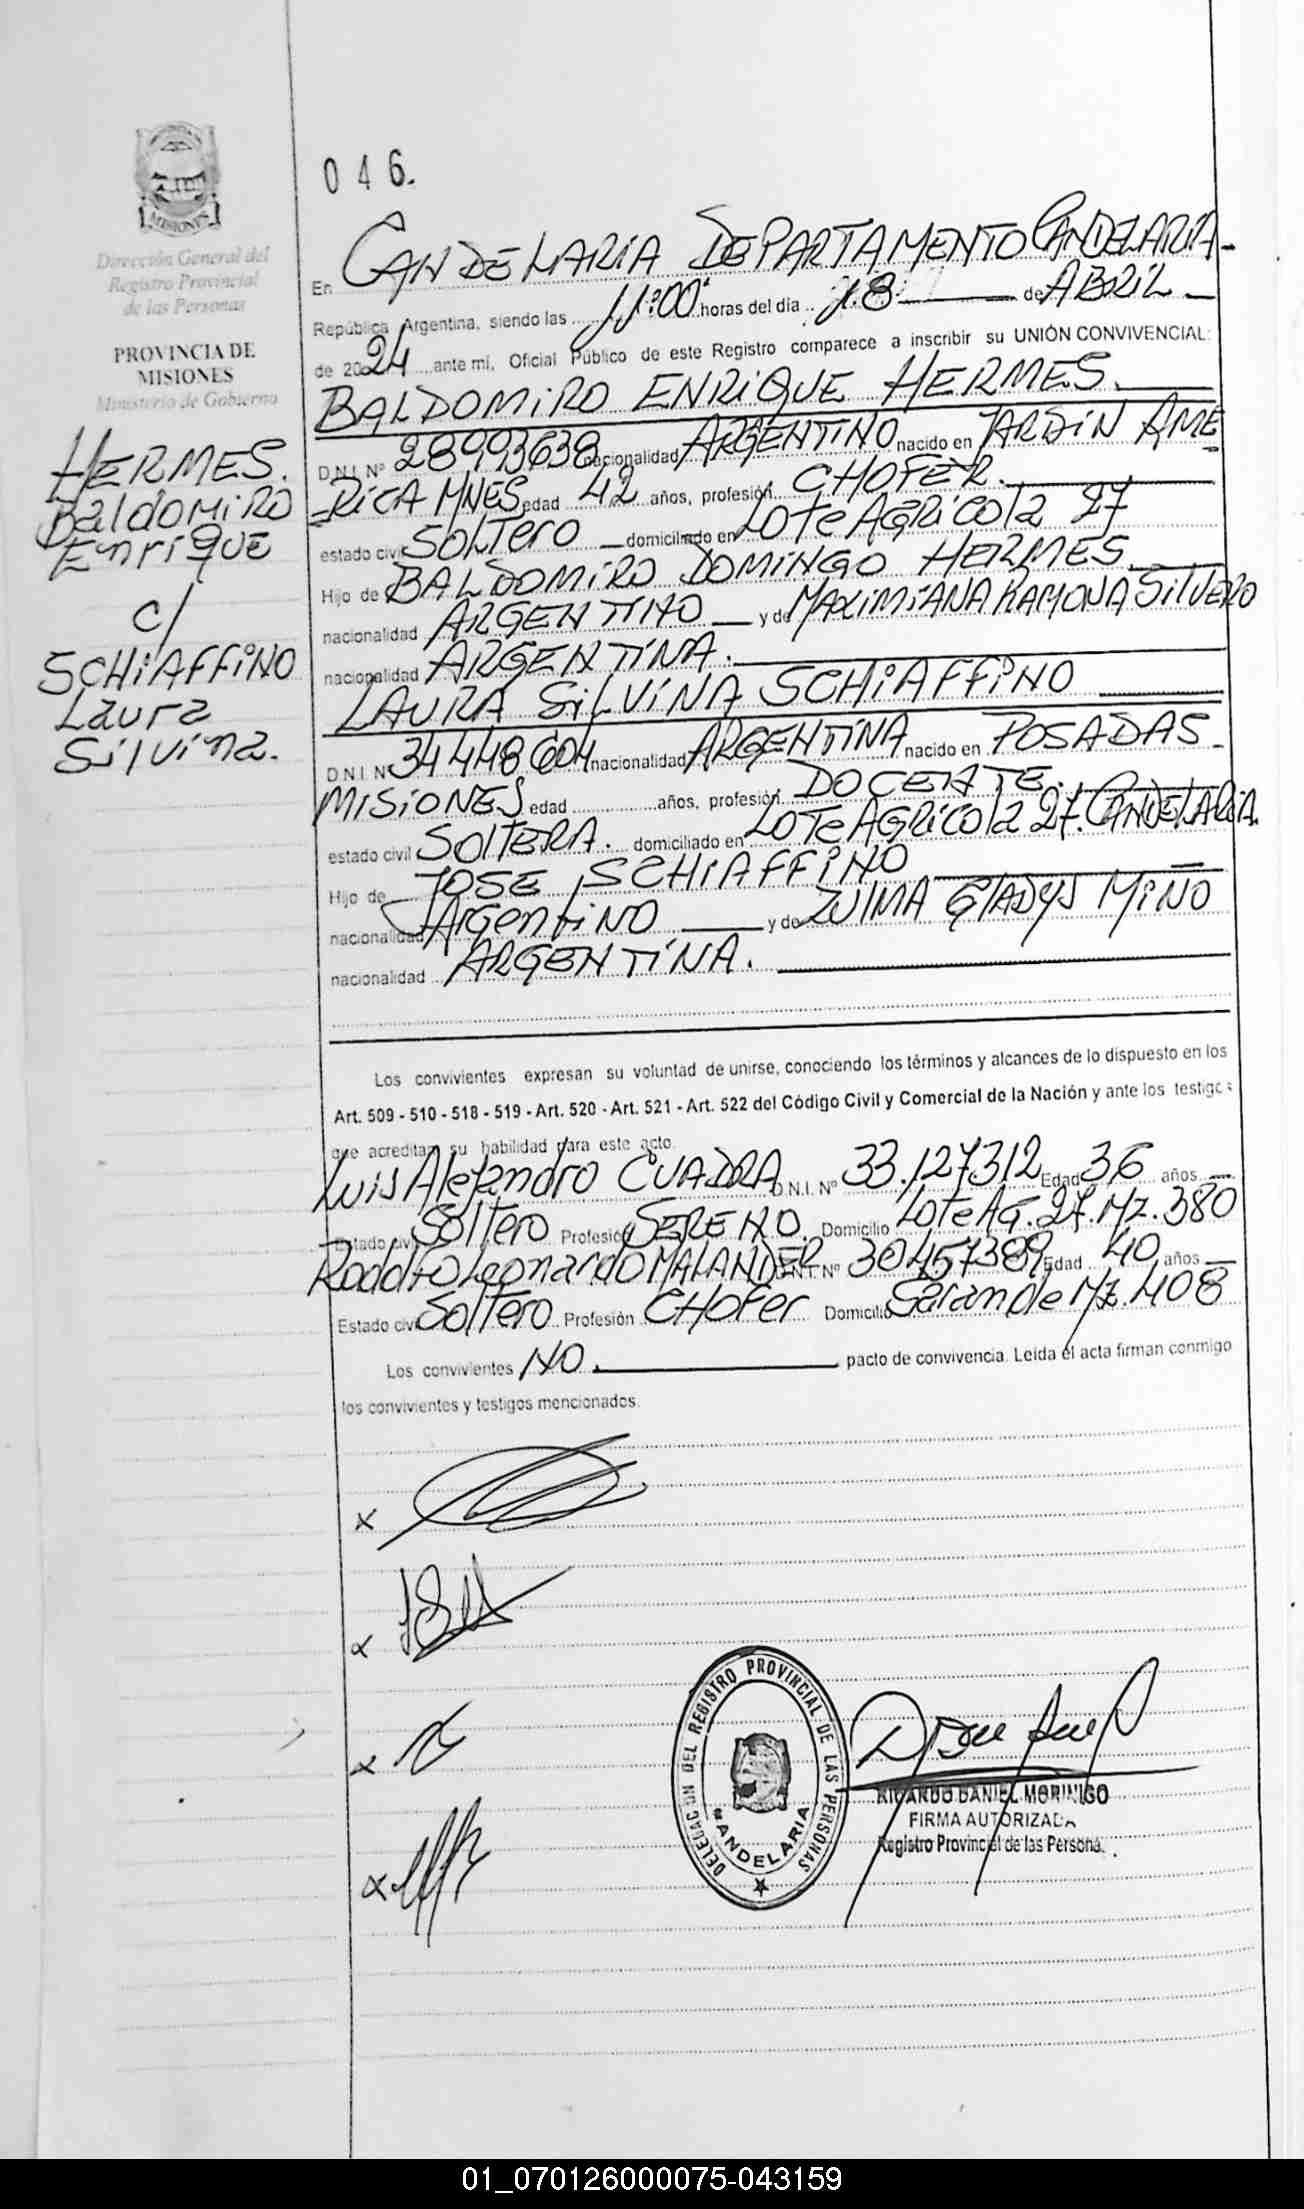 046.
MISIONES
Dirección General del
Registro Provincial
de las Personas
PROVINCIA DE
MISIONES
Ministerio de Gobierno
HERMES.
Baldomiro
Enrique
c/
SCHiAFFiNO
Laura
Silvina.
En CANDELARIA DEPARTAMENTO CANDELARIA-
República Argentina, siendo las 11:00 horas del día 18 de ABRIL
de 2024 ante mi, Oficial Público de este Registro comparece a inscribir su UNIÓN CONVIVENCIAL:
BALDOMiRO ENRiQUE HERMES.
D.N.I. Nº 28993638 nacionalidad ARGENTINO nacido en JARDiN AME
-RiCA MNES edad 42 años, profesión CHOFER.
estado civil SOLTERO domiciliado en LOTE AGRiCOLA 27
Hijo de BALDOMiRO DOMiNGO HERMES
nacionalidad ARGENTINO y de MAXIMIANA RAMONA SiLVERO
nacionalidad ARGENTINA.
LAURA SiLViNA SCHiAFFiNO
D.N.I. N 34448604 nacionalidad ARGENTINA nacido en POSADAS -
MISiONES edad años, profesión DOCENTE.
estado civil SOLTERA. domiciliado en LOTE AGRiCOLA 27. CANDELARIA.
Hijo de JOSE SCHiAFFiNO
nacionalidad Argentino y de ZULMA GLADYS MiÑO
nacionalidad ARGENTINA.
Los convivientes expresan su voluntad de unirse, conociendo los términos y alcances de lo dispuesto en los
Art. 509 - 510 - 518 - 519 - Art. 520 - Art. 521 - Art. 522 del Código Civil y Comercial de la Nación y ante los testigos
que acreditan su habilidad para este acto.
Luis Alejandro CUADRA D.N.I. Nº 33.127.312 Edad 36 años
Estado civil Soltero Profesión SERENO. Domicilio Lote AG. 27. Mz. 380
Rodolfo Leonardo MALANDER D.N.I. Nº 30457389 Edad 40 años
Estado civil Soltero Profesión CHOFER Domicilio Sarandi Mz. 408
Los convivientes NO. pacto de convivencia. Leída el acta firman conmigo
los convivientes y testigos mencionados.
x
x
x
x
DELEGACION DEL REGISTRO PROVINCIAL DE LAS PERSONAS
CANDELARIA
RICARDO DANIEL MORINIGO
FIRMA AUTORIZADA
Registro Provincial de las Persona.
01_070126000075-043159